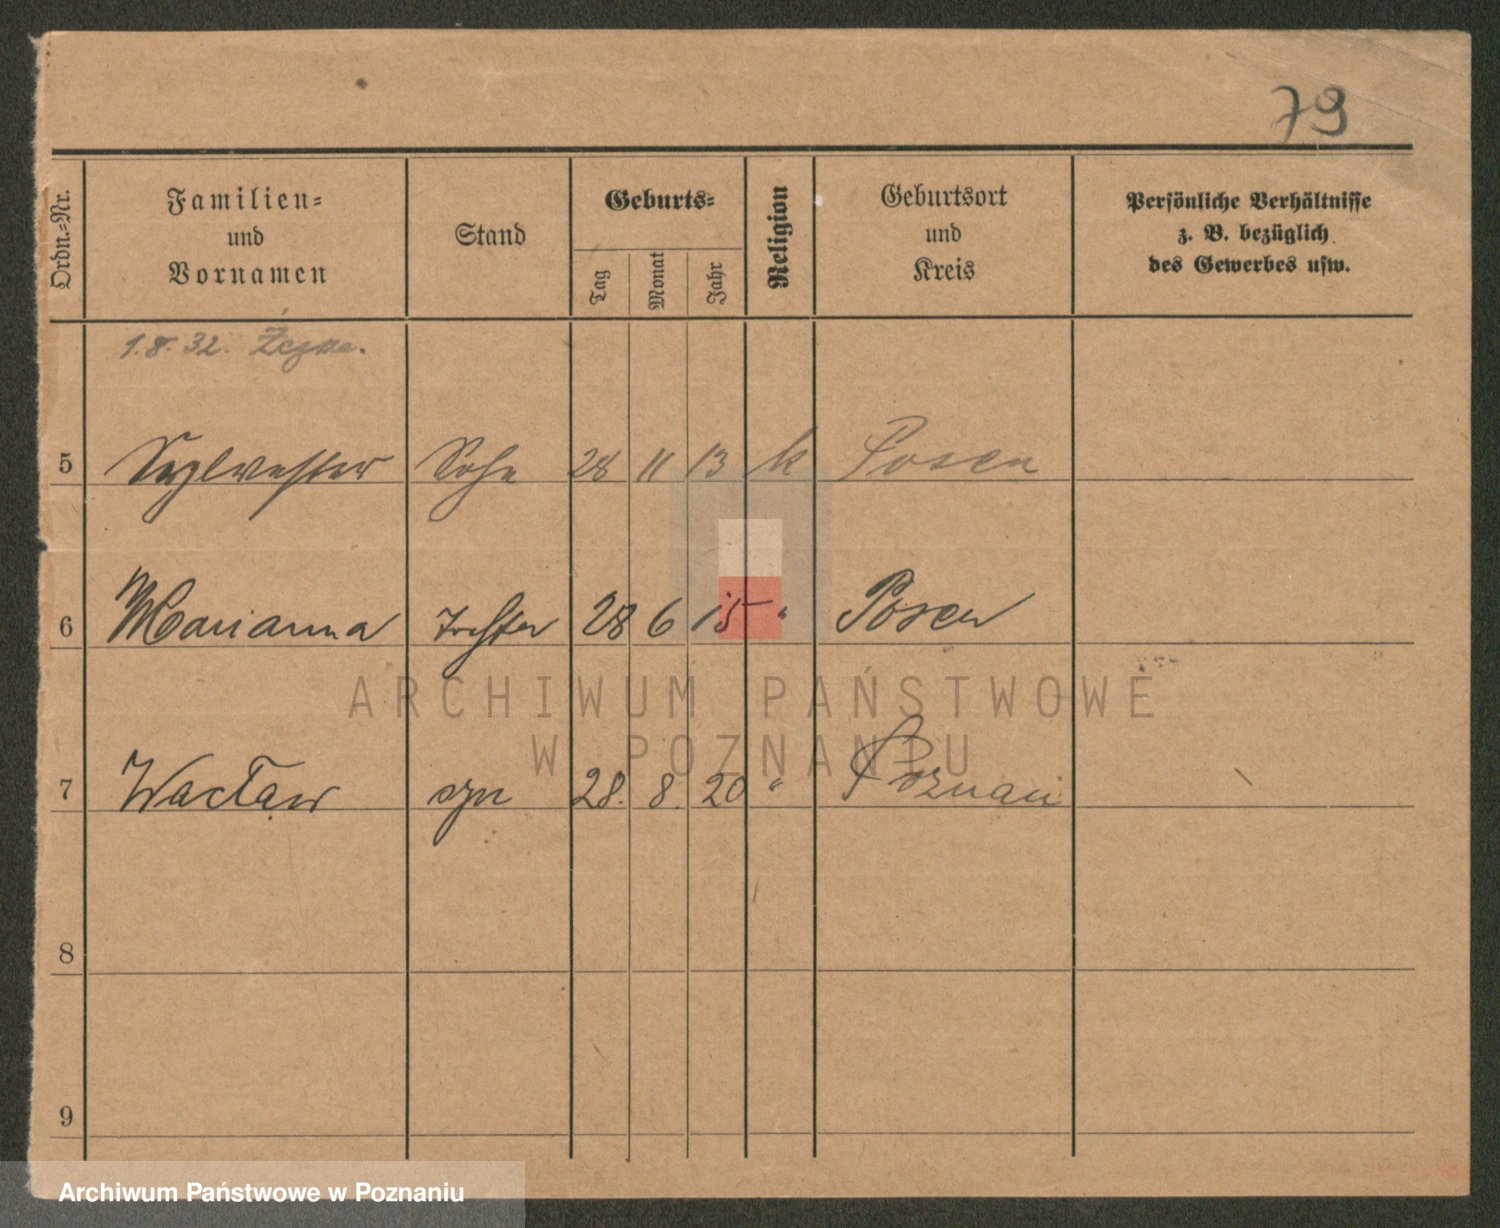 79
Ordn.-Nr.
Familien-
und
Vornamen
Stand
Geburts-
Tag
Monat
Jahr
Religion
Geburtsort
und
Kreis
Persönliche Verhältnisse
z. B. bezüglich
des Gewerbes usw.
1.8.32.
5 Sylvester Sohn 28 11 13 k Posen
6 Marianna Tochter 28 6 15 " Posen
7 Wacław syn 28. 8. 20 " Poznań
8
9
ARCHIWUM PAŃSTWOWE
W POZNANIU
Archiwum Państwowe w Poznaniu